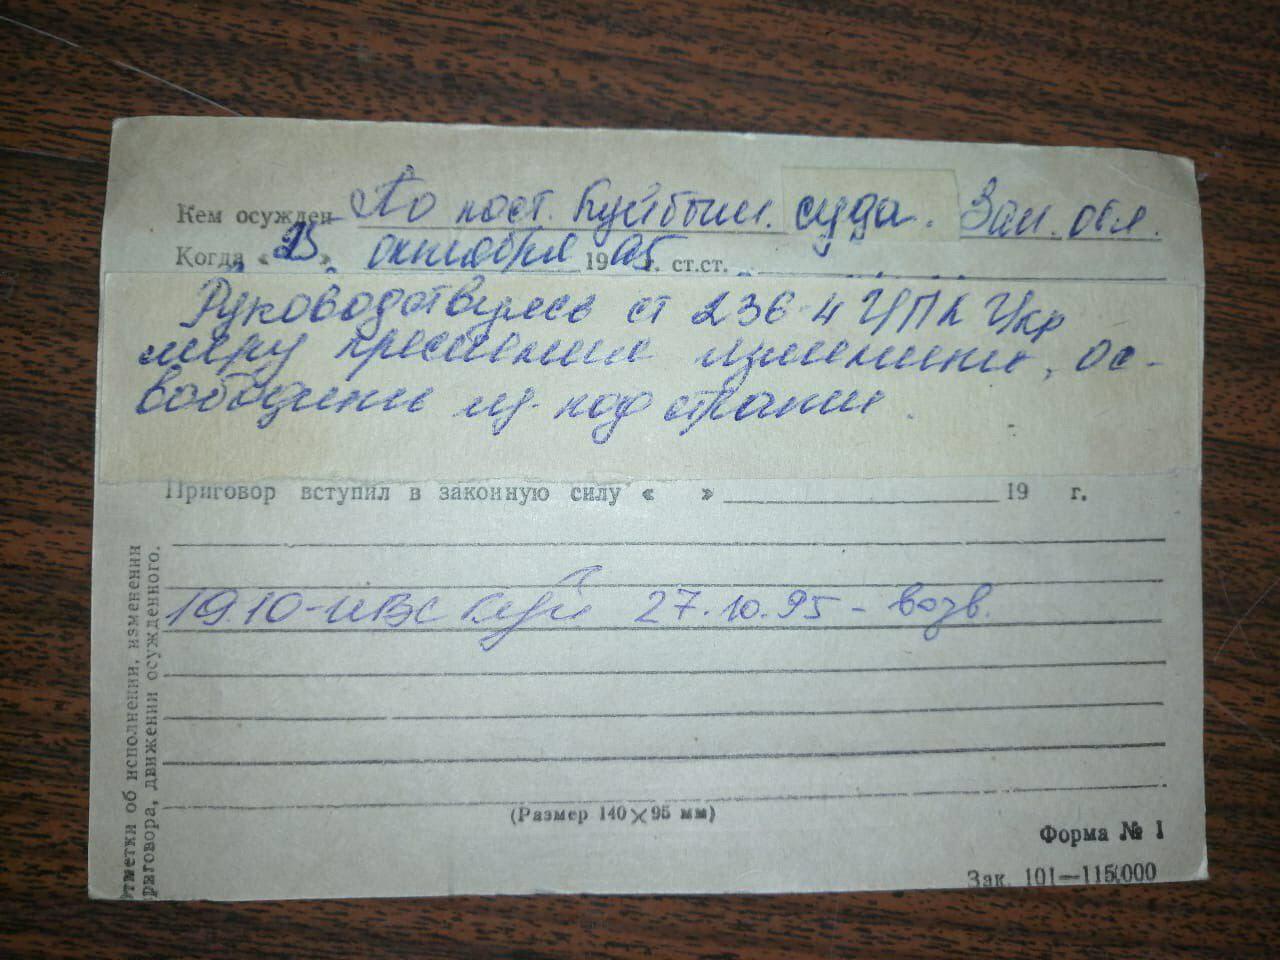 Кем осужден По пост. Куйбыш. суда. Зап. обл.
Когда « 25 » октября 1995 г. ст.ст.
Руководствуясь ст 236-4 УПК Укр
меру пресечения изменить, ос-
вободить из-под стражи.
Приговор вступил в законную силу « » 19 г.
19.10-ИВС Куй 27.10.95 - возв.
Отметки об исполнении, изменении
приговора, движении осужденного.
(Размер 140×95 мм)
Форма № 1
Зак. 101—115000